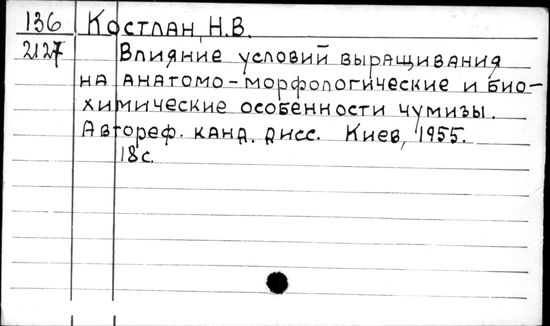 136 Костлан, Н.В.
2127 Влияние условий выращивания
на анатомо-морфологические и био-
химические особенности чумизы.
Автореф. канд. дисс. Киев, 1955.
18с.